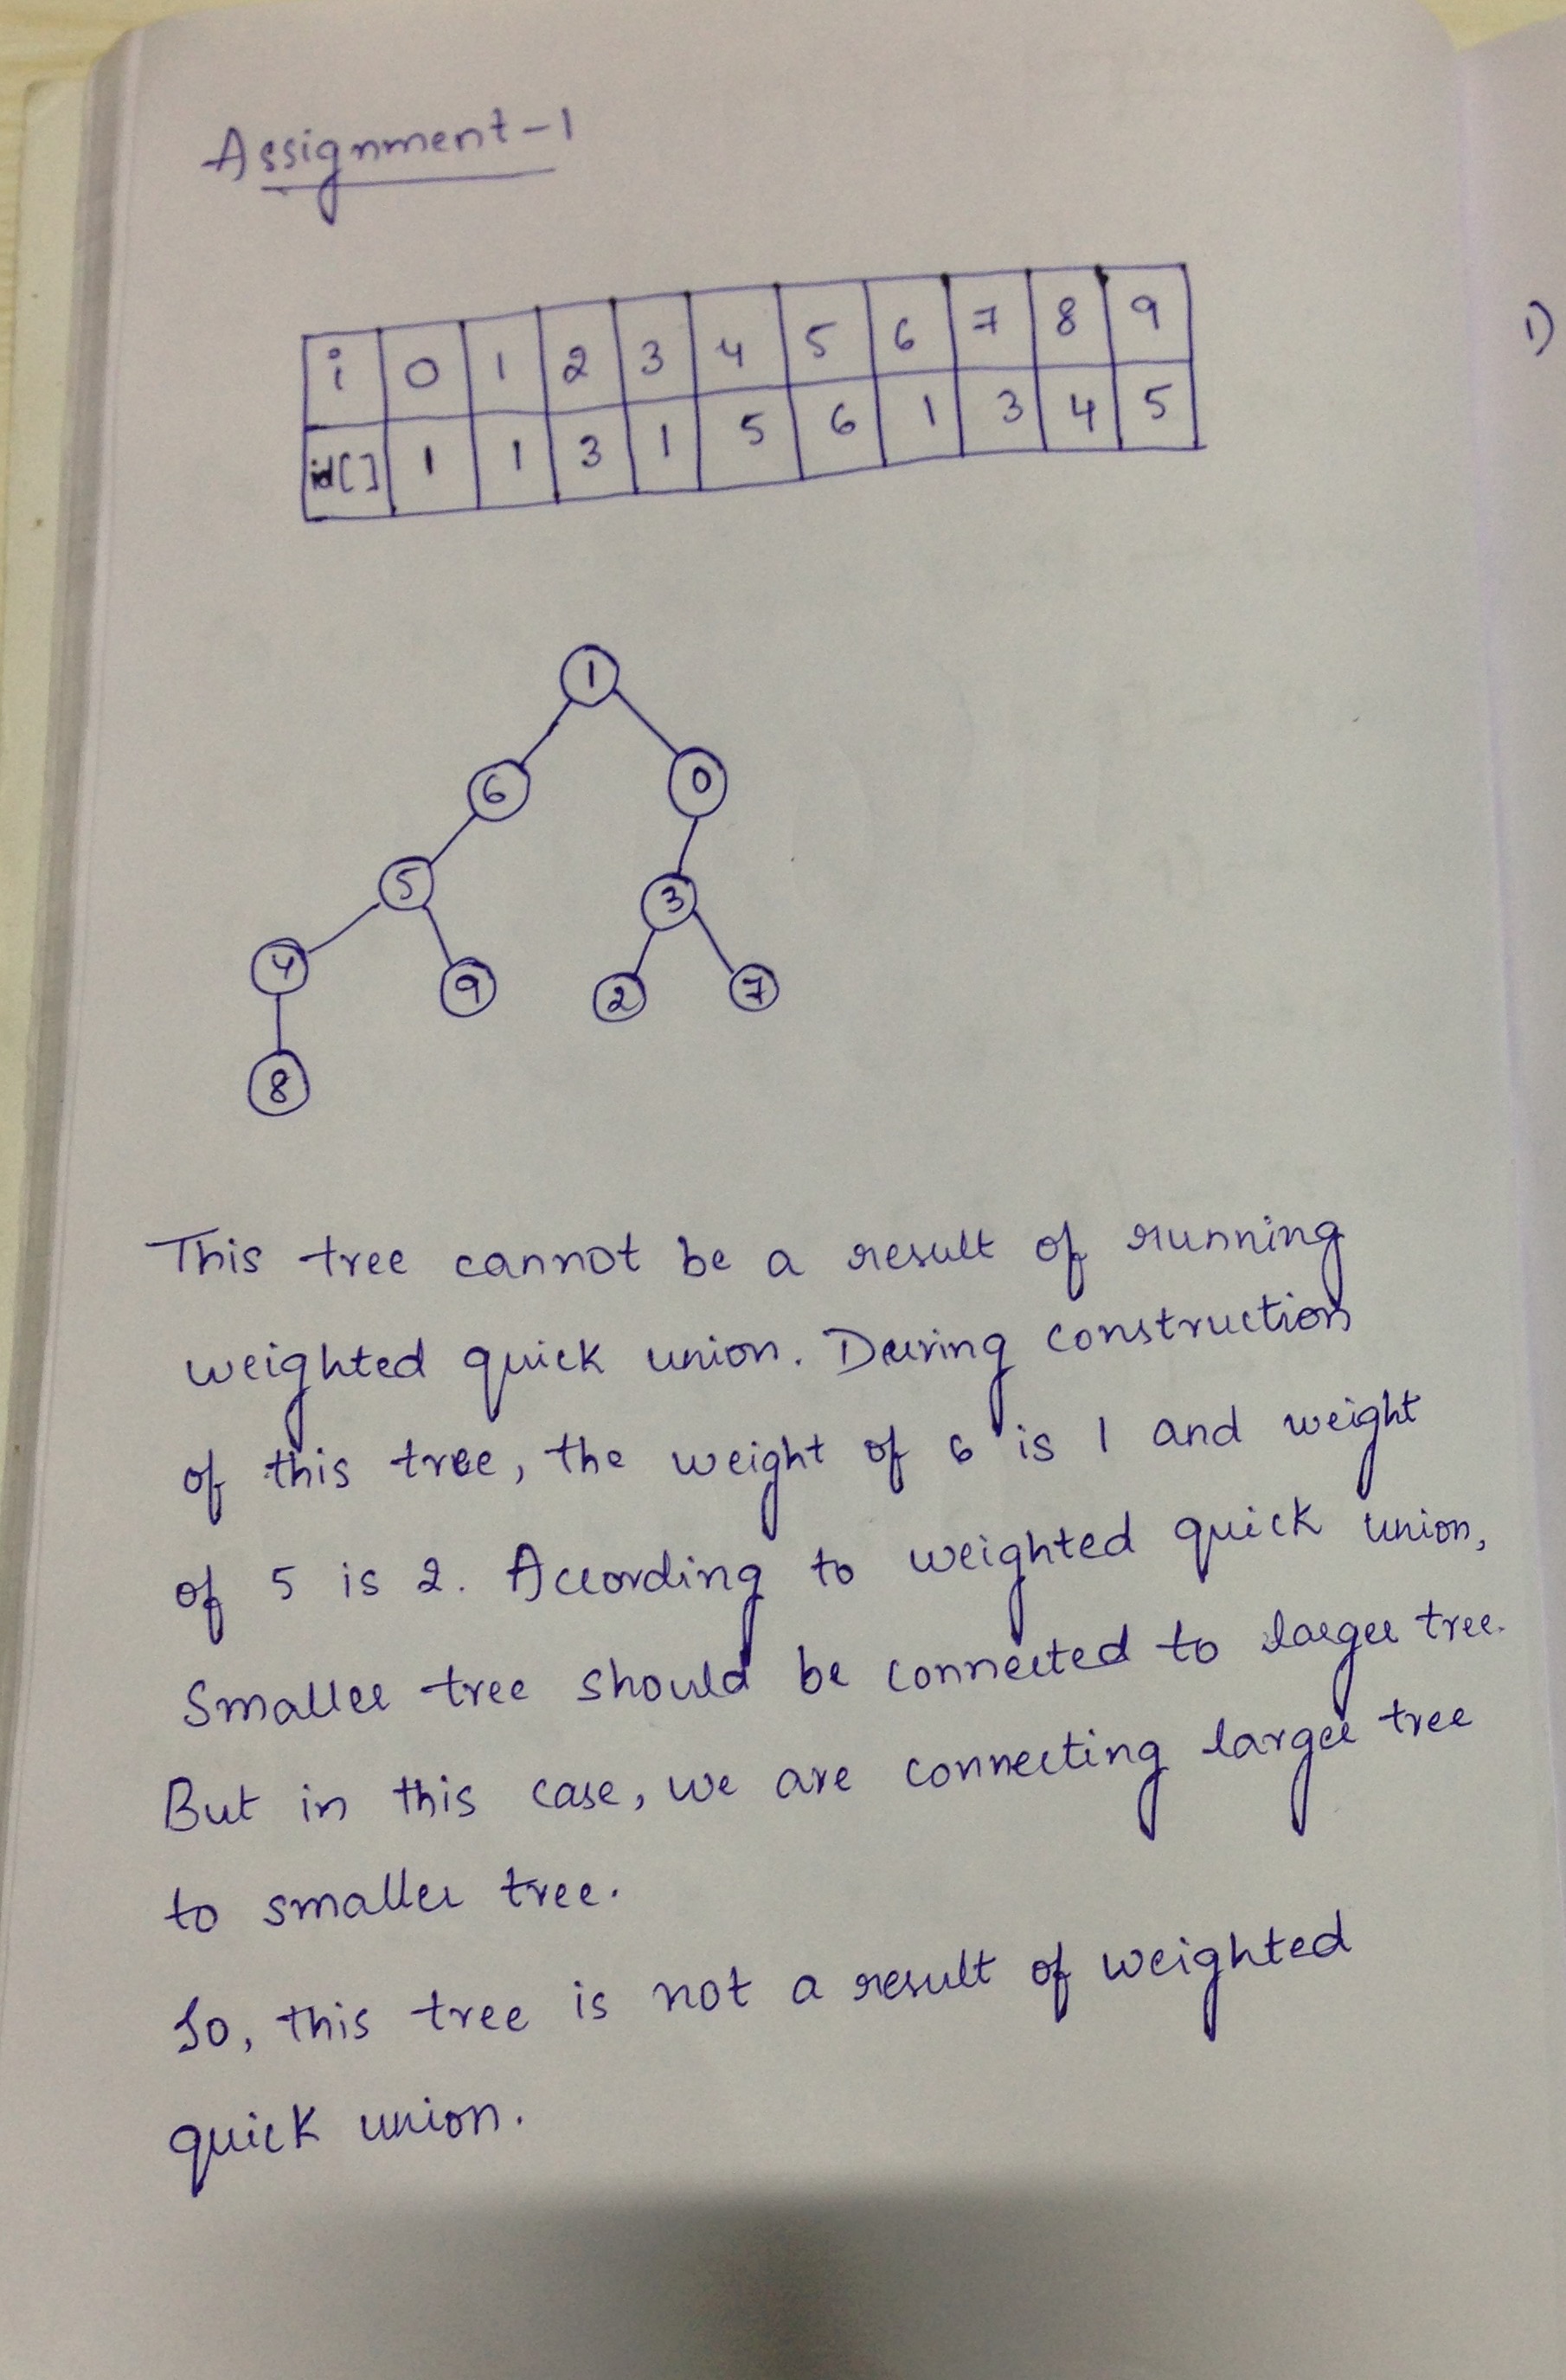 Assignment-1
i 0 1 2 3 4 5 6 7 8 9
id[] 1 1 3 1 5 6 1 3 4 5
1)
1
6 0
5 3
4 9 2 7
8
This tree cannot be a result of running
weighted quick union. During construction
of this tree, the weight of 6 is 1 and weight
of 5 is 2. According to weighted quick union,
Smaller tree should be connected to larger tree.
But in this case, we are connecting larger tree
to smaller tree.
So, this tree is not a result of weighted
quick union.